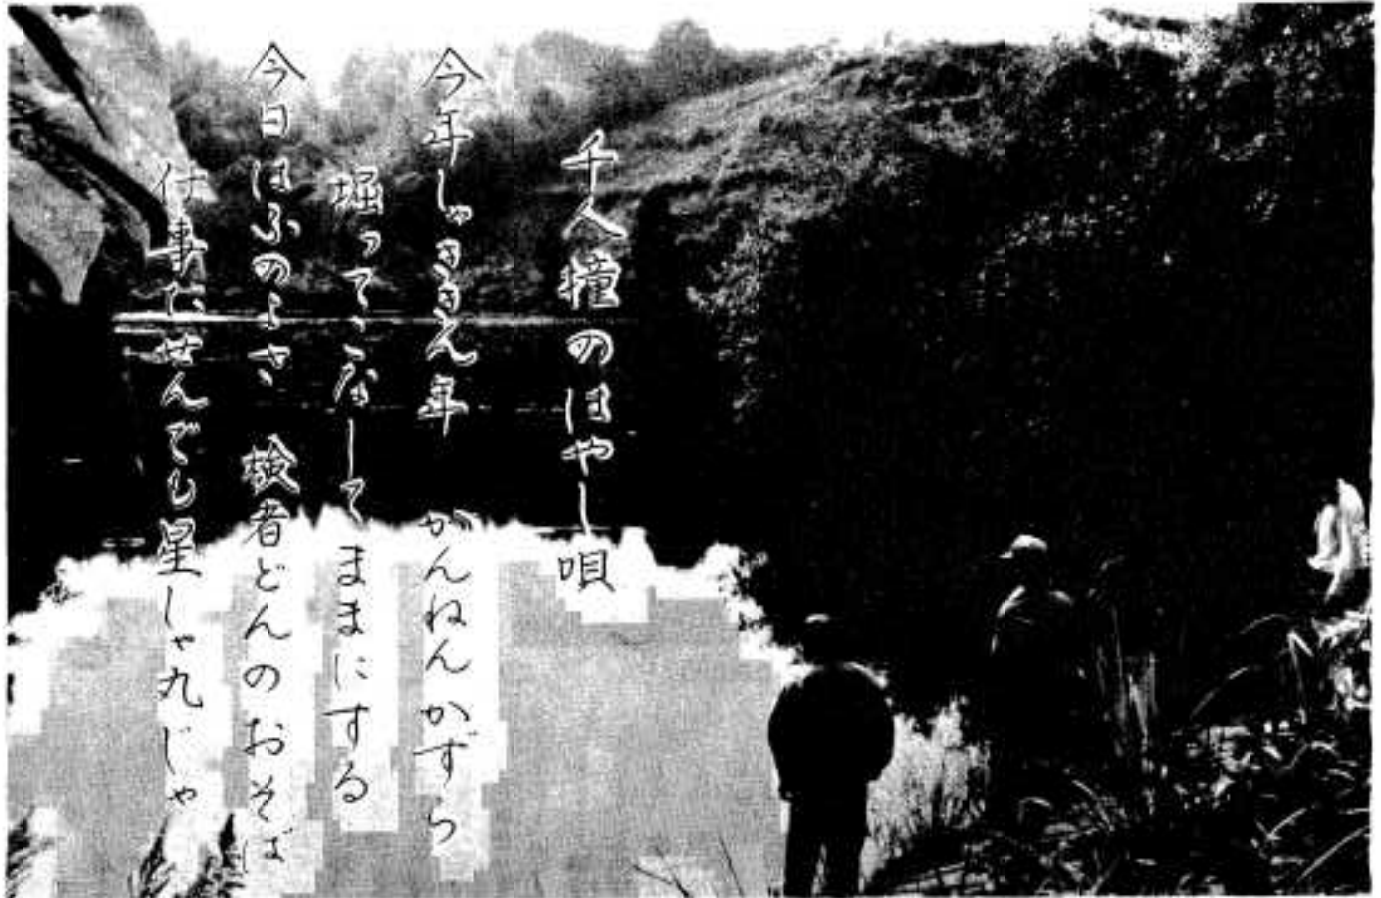 千人撞のはやし唄
今年しゃききん年 かんねんかずら
堀ってこなしてままにする
今日はふのよさ 検者どんのおそば
仕事たせんでも星しゃ丸じゃ